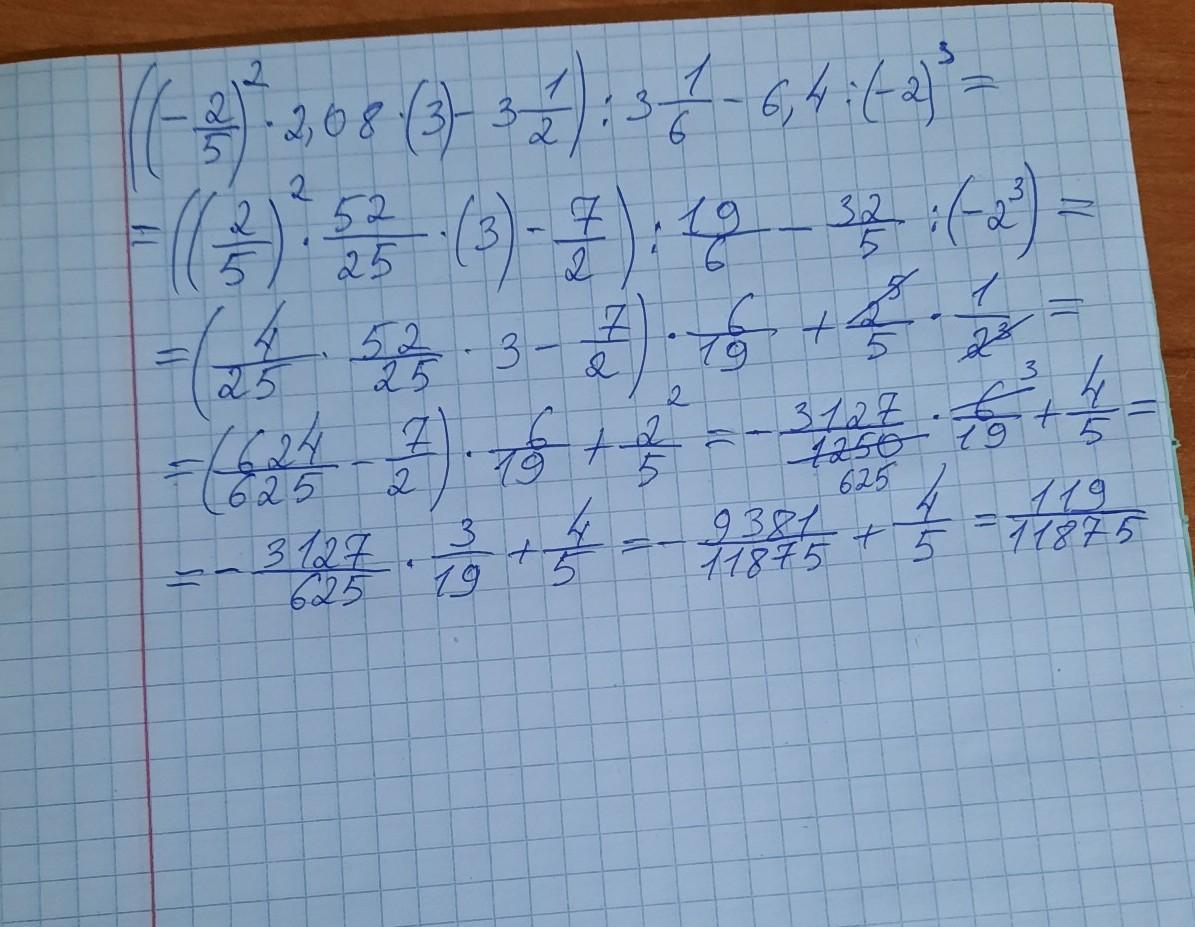 ((-2/5)² · 2,08 · (3) - 3 1/2) : 3 1/6 - 6,4 : (-2)³ =
= ((2/5)² · 52/25 · (3) - 7/2) : 19/6 - 32/5 : (-2³) =
= (4/25 · 52/25 · 3 - 7/2) · 6/19 + 2⁵/5 · 1/2³ =
= (624/625 - 7/2) · 6/19 + 2²/5 = - 3127/1250 625 · 6³/19 + 4/5 =
= - 3127/625 · 3/19 + 4/5 = - 9381/11875 + 4/5 = 119/11875